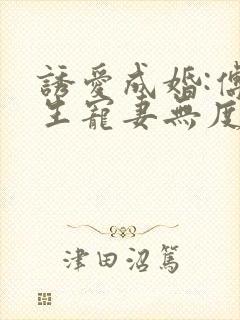 誘愛成婚:傅
生寵妻無度
津田沼篤